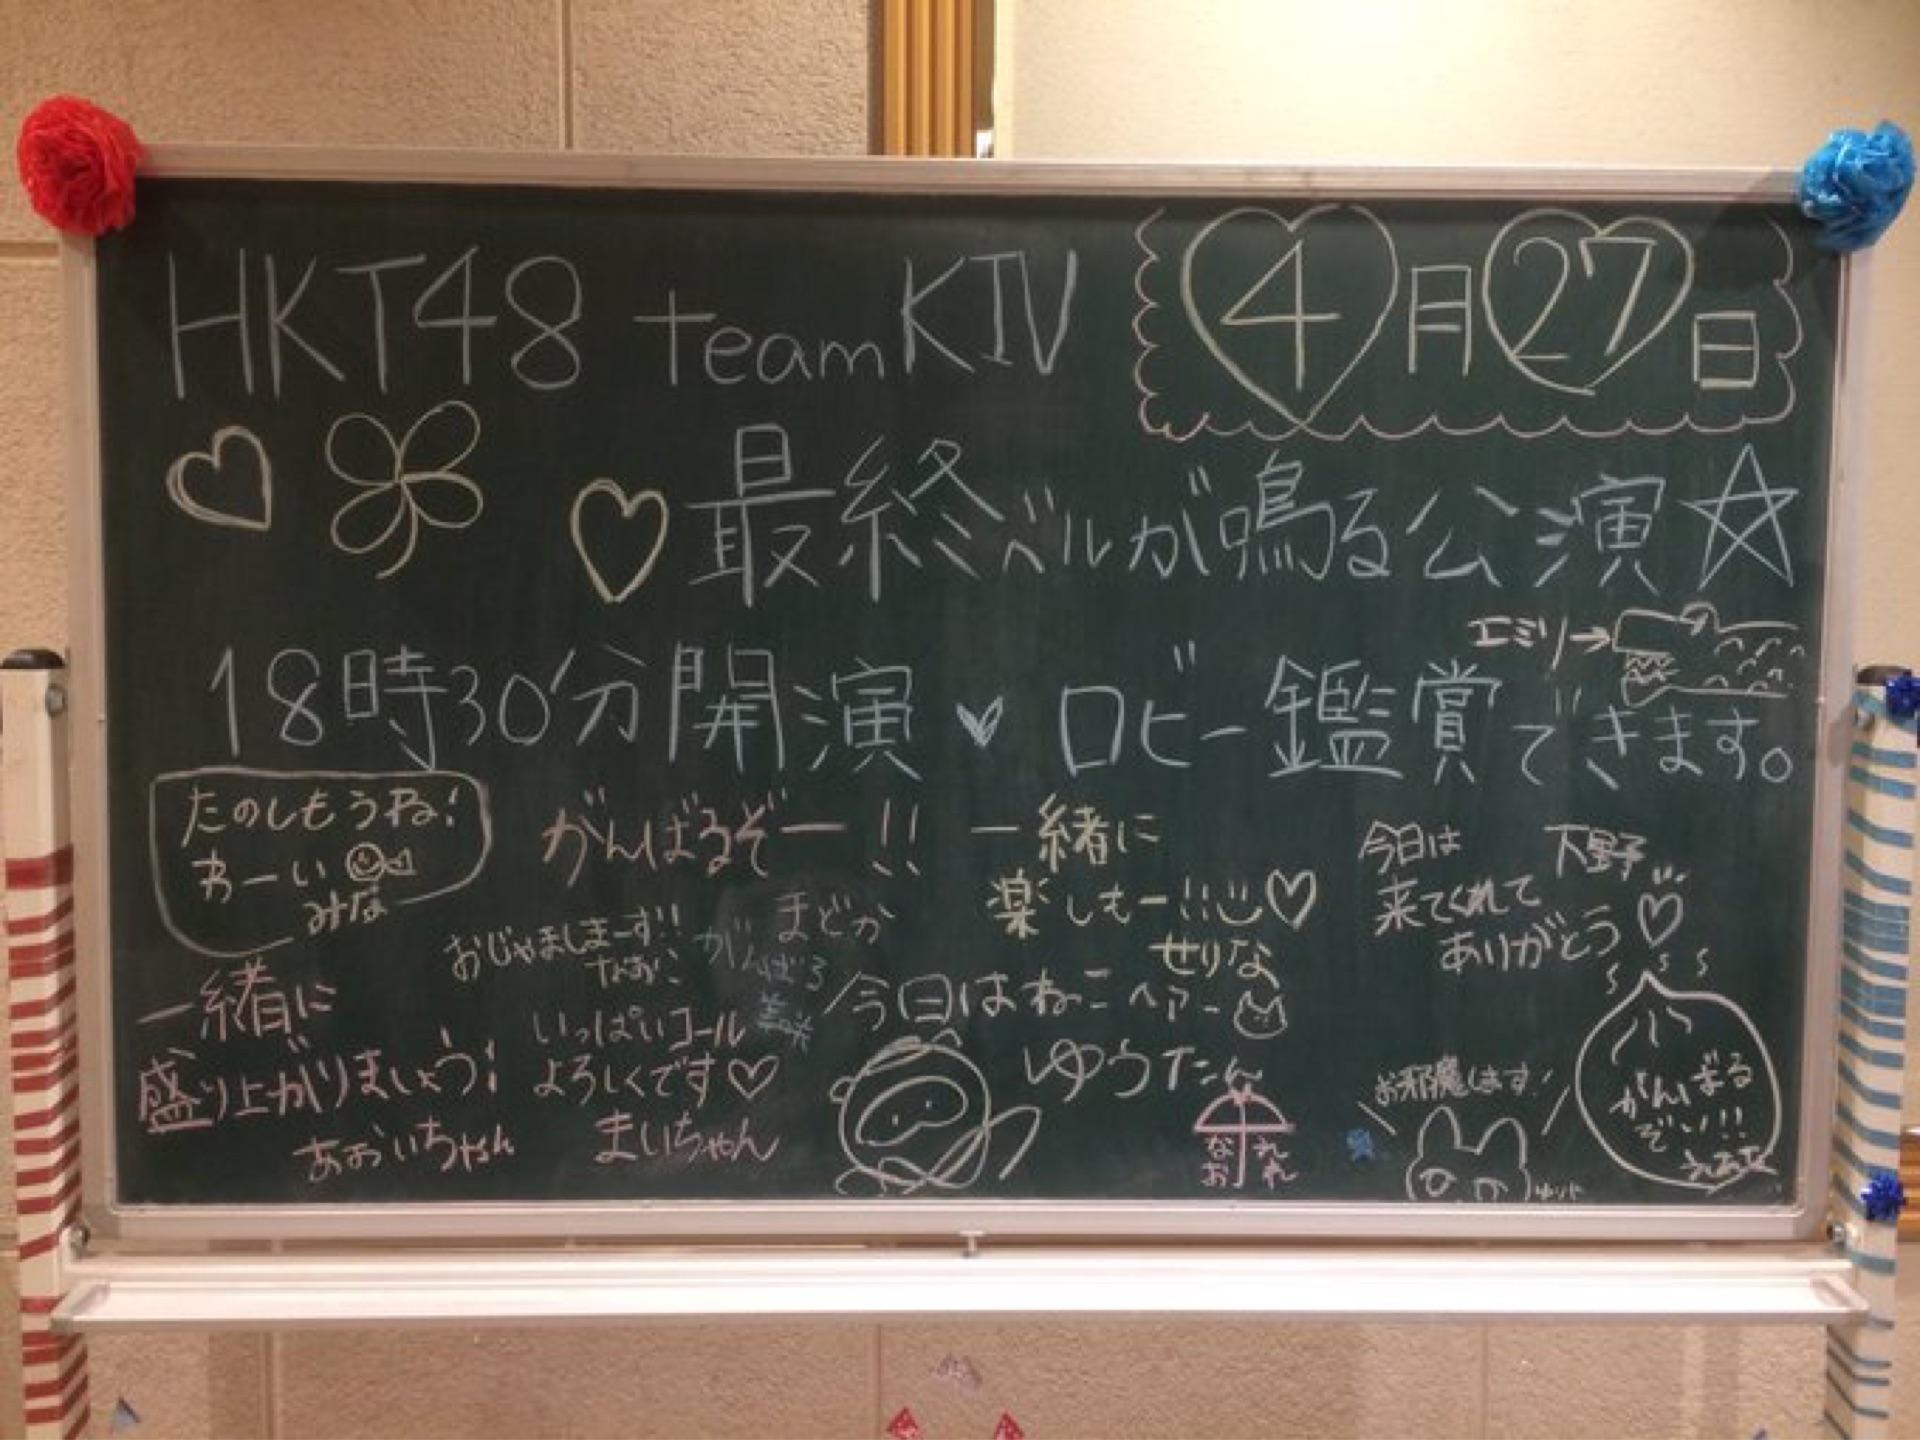 HKT48 teamKIV
4月27日
最終ベルが鳴る公演
エミリ→
18時30分開演 ロビー鑑賞できます。
たのしもうね!
わーい
みな
がんばるぞー!!
まどか
一緒に
楽しもー!!
せりな
今日は
来てくれて
ありがとう
下野
おじゃましまーす!!
がんばる
美咲
一緒に
盛り上がりましょう!
あおいちゃん
いっぱいコール
よろしくです
まいちゃん
今日はねこヘアー
ゆうたん
なお
えれ
お邪魔します!
がんばる
ぞい!!